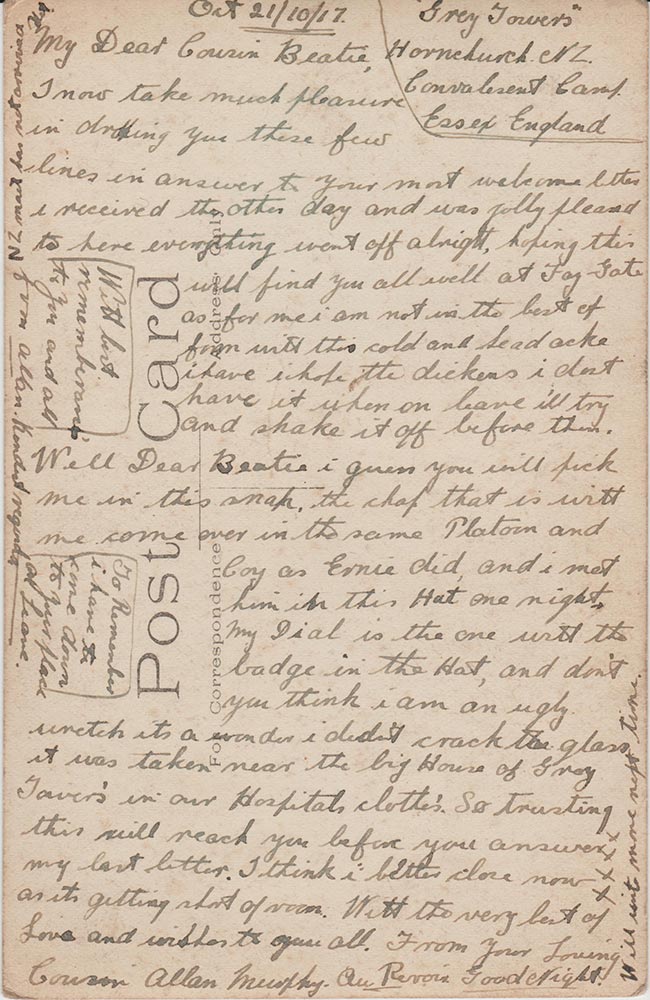 Oct 21/10/17.
"Grey Towers"
Hornchurch. N.Z.
Convalesent Camp.
Essex England
My Dear Cousin Beatie,
I now take much pleasure
in droping you these few
lines in answer to your most welcome letter
i received the other day and was jolly pleased
to here everything went off alright, hoping this
will find you all well at Fay-Gate
as for me i am not in the best of
form witt this cold and head acke
i have i hope the dickens i dont
have it when on leave ill try
and shake it off before then.
Well Dear Beatie i guess you will pick
me in this snap, the chap that is witt
me come over in the same Platoon and
Coy as Ernie did, and i met
him in this Hut one night.
My Dial is the one witt the
badge in the Hat, and don't
you think i am an ugly
wretch its a wonder i didn't crack the glass
it was taken near the big House of Grey
Tower's in our Hospitals clothe's. So trusting
this will reach you before you answer
my last letter. I think i better close now
as its getting short of room. Witt the very best of
Love and wishes to you all. From Your Loving
Cousin Allan Murphy. Au Revoir Good Night.
xxxx
Will writ more next time.
Witt best
rememberance
to you and all
from Allan. Kindest regards
To Remember
i have to
come down
to your place
on Leave.
N.Z. mail
arrived
Post Card
For Correspondence
Address Only